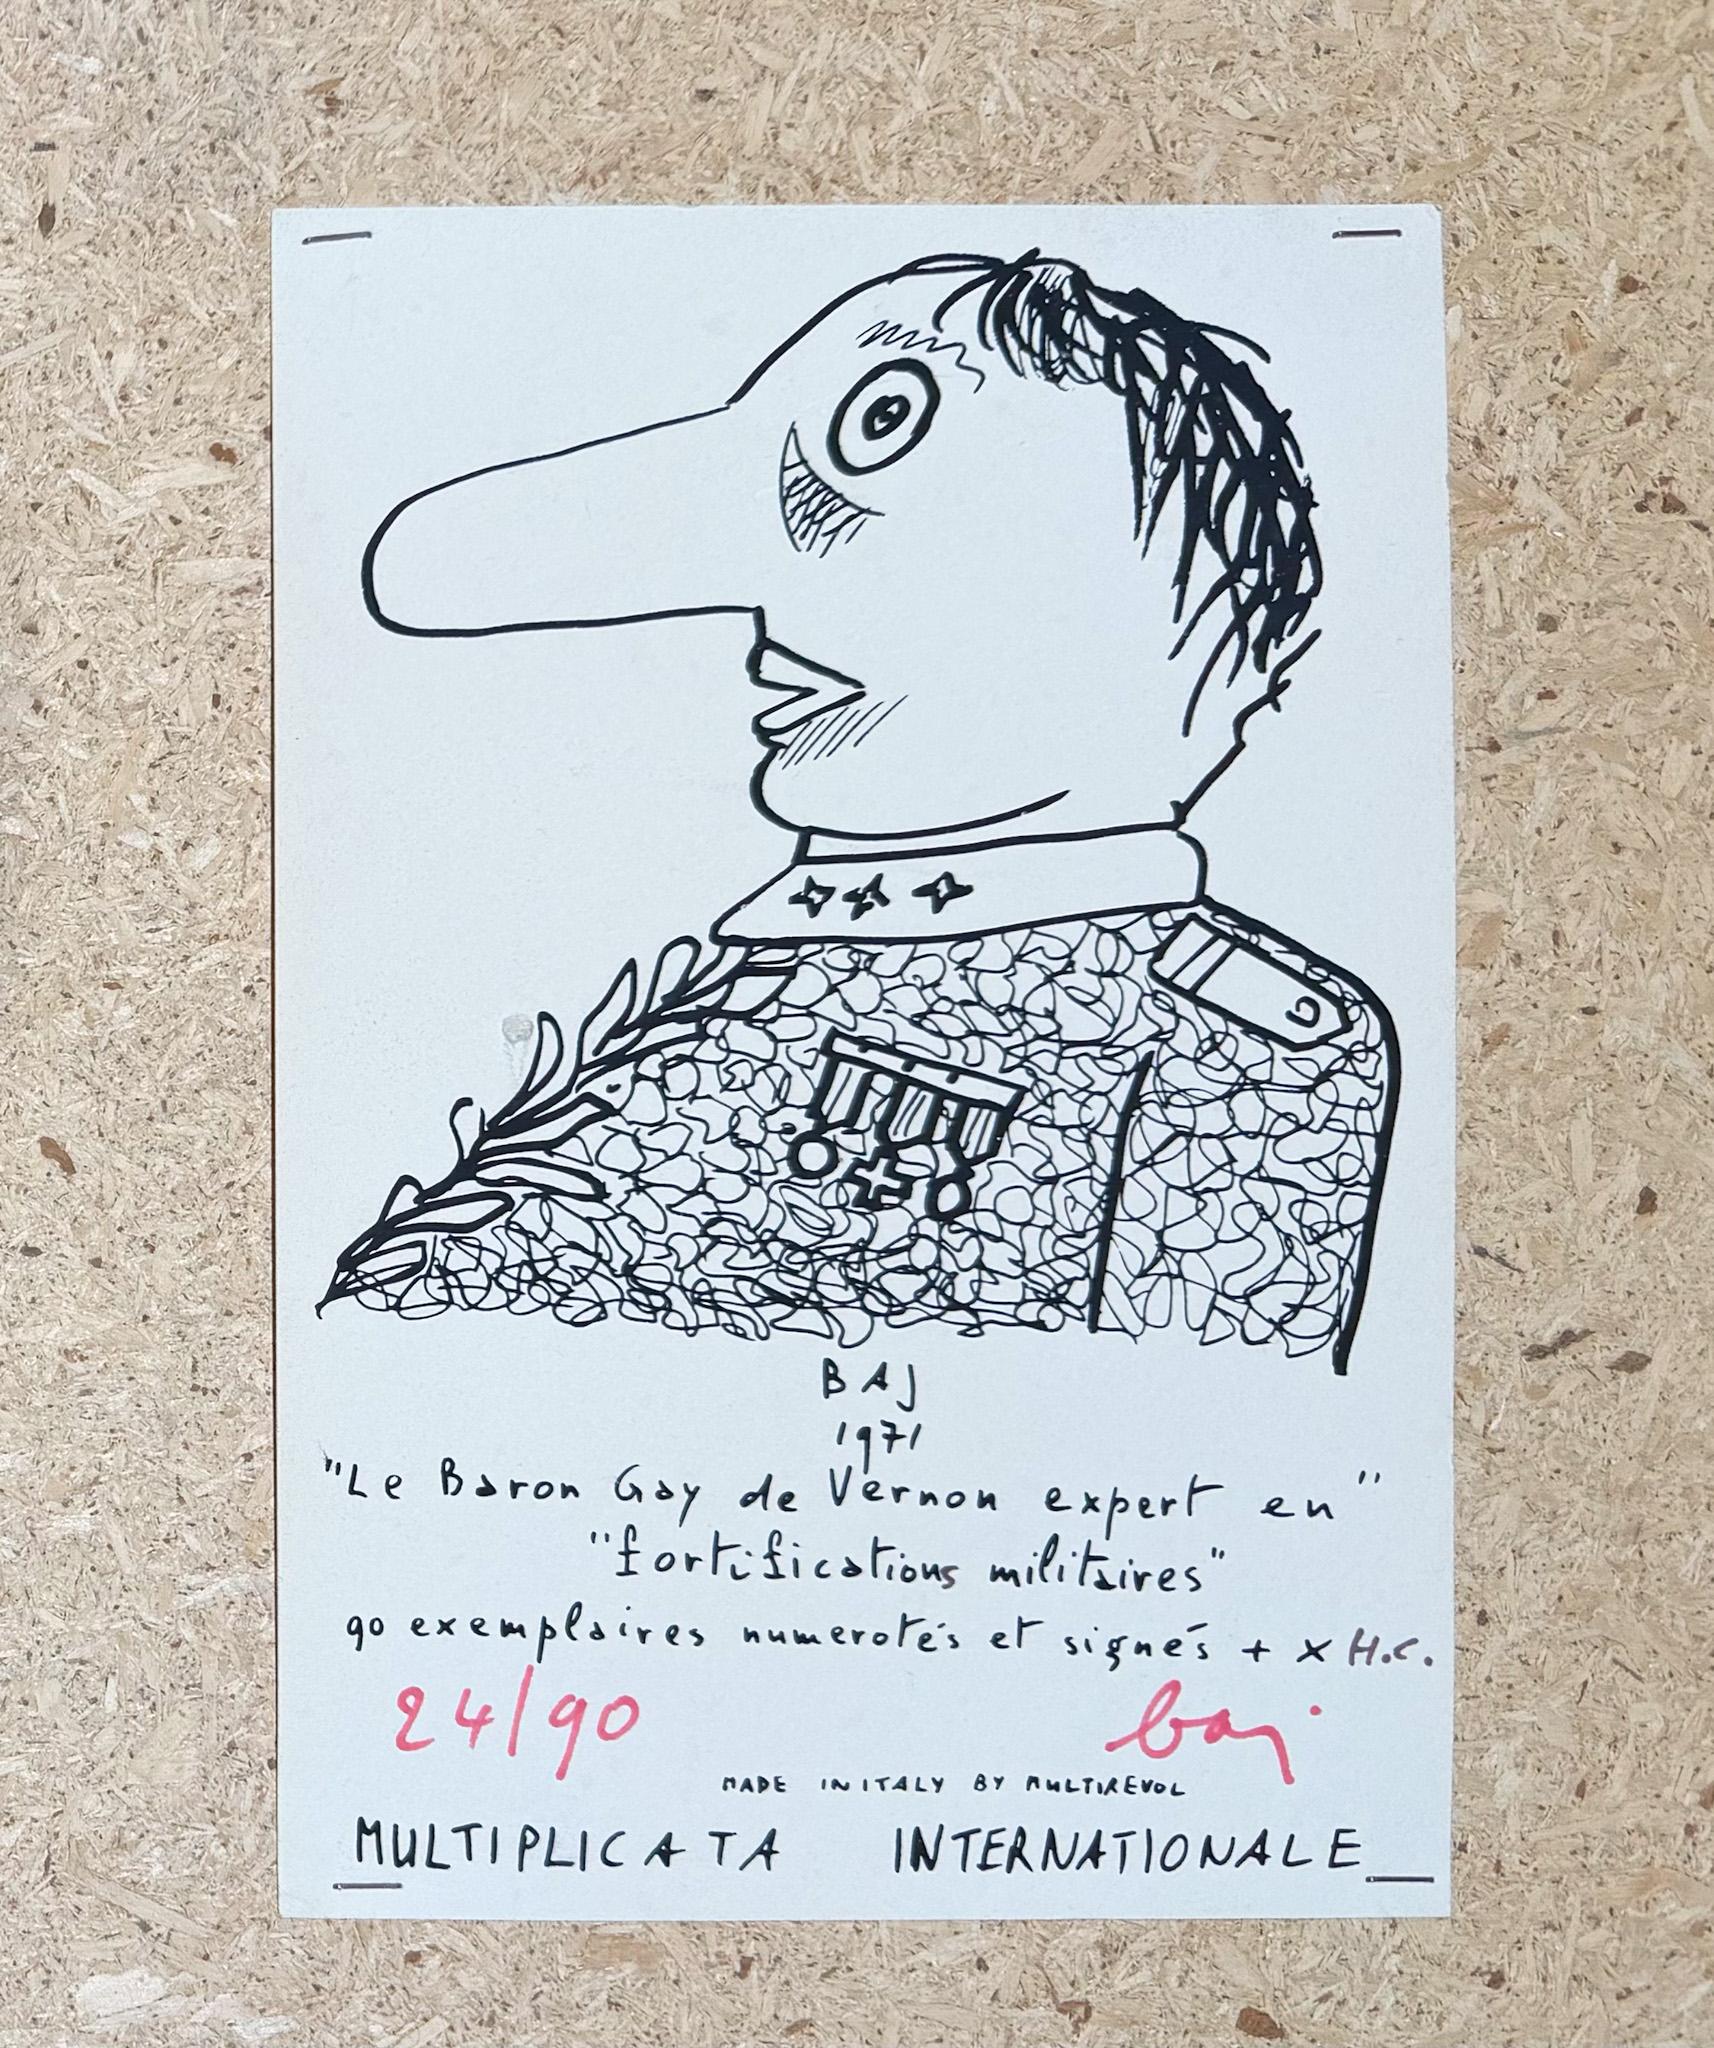 BAJ
1971
"Le Baron Gay de Vernon expert en"
"fortifications militaires"
90 exemplaires numerotés et signés + x H.C.
24/90 baj
MADE IN ITALY BY MULTIREVOL
MULTIPLICATA INTERNATIONALE